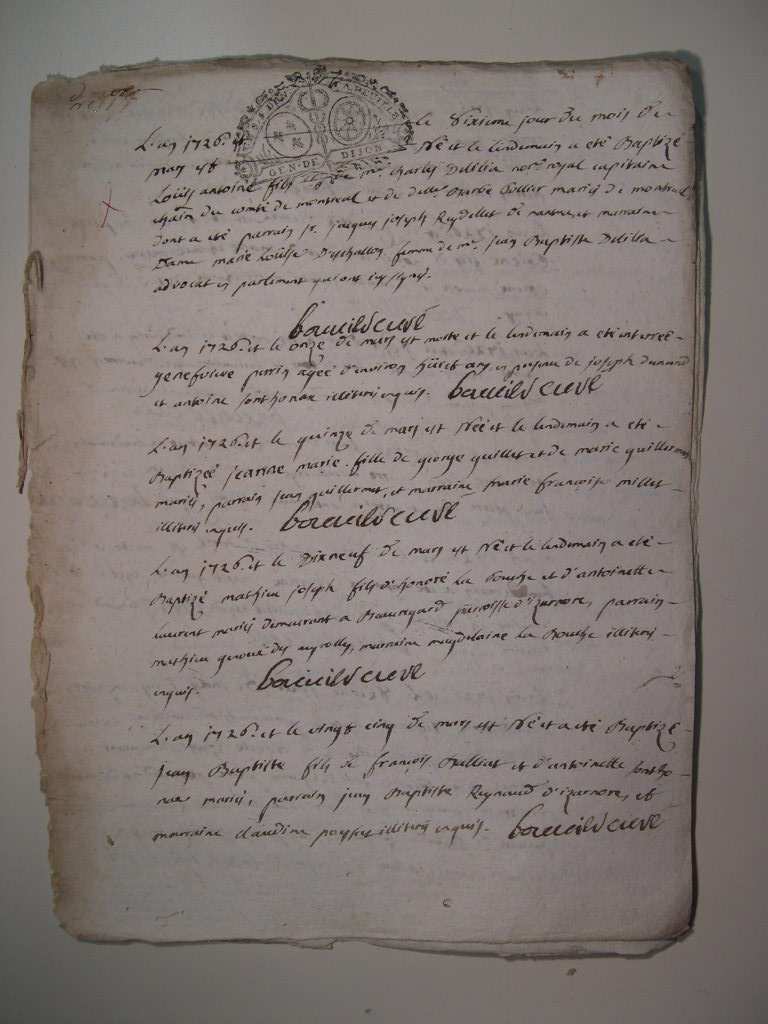 GEN. DE DIJON
L'an 1726. et le sixieme jour du mois de
mars est Né et le lendemain a eté Baptizé
Loüis antoine fils de mr. charles Delilia royal capitaine
du comté de montreal et de mariés de montreal
dont a eté parrain sr. jacques joseph Reydellet de et marraine
Dame marie Loüise femme de mr. jean Baptiste Delilia
advocat en parlement qui ont
curé
L'an 1726. et le onze de mars est morte et le lendemain a eté enterreé
genefvieve perrin ageé d'environ huict ans en presence de joseph
et antoine sonthonax illiterés enquis. curé
L'an 1726. et le quinze de mars est Neé et le lendemain a eté
Baptizeé jeanne marie fille de george guillet et de marie guillermet
mariés, parrain jean guillermet, et marraine marie françoise millet
illiterés enquis. curé
L'an 1726. et le Dixneuf de mars est Né et le lendemain a eté
Baptizé mathieu joseph fils d'honoré La Bouche et d'antoinette
Laurent mariés demeurant a Beauregard parroisse d'izernore, parrain
mathieu des marraine magdelaine La Bouche illiterés
enquis. curé
L'an 1726. et le vingt cinq de mars est Né et a eté Baptizé
jean Baptiste fils de françois et d'antoinette sontho-
nax mariés, parrain jean Baptiste Reynaud d'izernore, et
marraine claudine illiterés enquis. curé